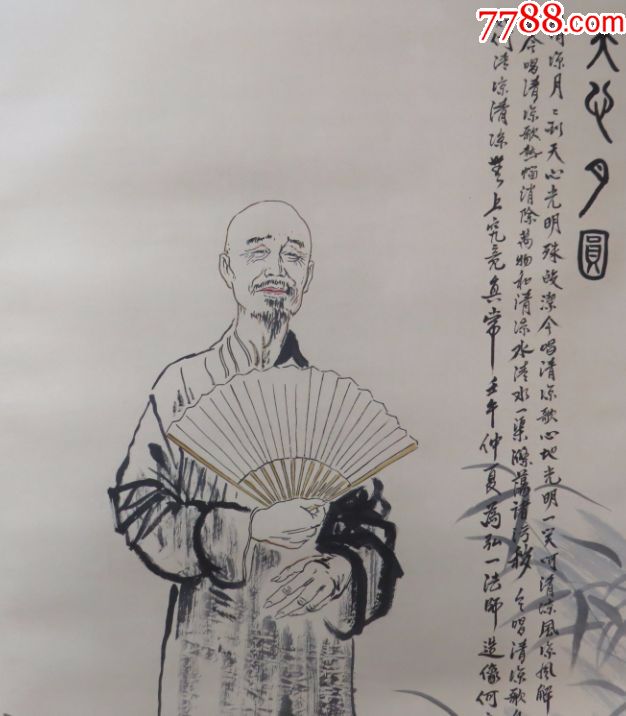 7788.com
天心月圓
清涼月月到天心光明殊皎潔今唱清涼歌心地光明一笑呵清涼風涼風解
今唱清涼歌熱惱消除萬物和清涼水清水一渠滌蕩諸污穢今唱清涼歌
清涼清涼無上究竟真常壬午仲夏為弘一法師造像何